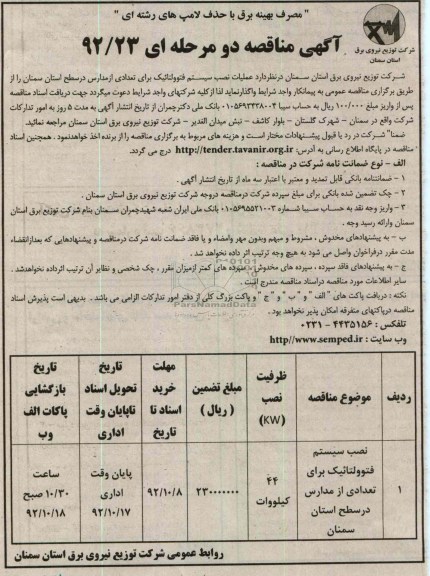 " مصرف بهینه برق با حذف لامپ های رشته ای "
آگهی مناقصه دو مرحله ای ۹۲/۲۳
شرکت توزیع نیروی برق
استان سمنان
شرکت توزیع نیروی برق استان سمنان درنظردارد عملیات نصب سیستم فتوولتائیک برای تعدادی ازمدارس درسطح استان سمنان را از
طریق برگزاری مناقصه عمومی به پیمانکار واجد شرایط واگذارنماید لذا ازکلیه شرکتهای واجد شرایط دعوت میگردد جهت دریافت اسناد مناقصه
پس از واریز مبلغ ۱۰۰/۰۰۰ ریال به حساب سیبا ۰۱۰۵۶۹۳۴۳۸۰۰۴ بانک ملی دکترچمران از تاریخ انتشار آگهی به مدت ۵ روز به امور تدارکات
شرکت واقع در سمنان - شهرک گلستان - بلوار کاشف - نبش میدان الغدیر - شرکت توزیع نیروی برق استان سمنان مراجعه نمائید.
ضمنا" شرکت در رد یا قبول پیشنهادات مختار است و هزینه های مربوط به برگزاری مناقصه را از برنده اخذ خواهدنمود . همچنین اسناد
مناقصه در پایگاه اطلاع رسانی به آدرس: http://tender.tavanir.org.ir درج می گردد.
الف - نوع ضمانت نامه شرکت در مناقصه :
۱ - ضمانتنامه بانکی قابل تمدید و معتبر با اعتبار سه ماه از تاریخ انتشار آگهی
۲ - چک تضمین شده بانکی برای مبلغ سپرده شرکت درمناقصه دروجه شرکت توزیع نیروی برق استان سمنان .
۳ - واریز وجه نقد به حساب سیبا شماره ۰۱۰۵۶۹۵۵۲۱۰۰۳ بانک ملی ایران شعبه شهیدچمران سمنان بنام شرکت توزیع برق استان
سمنان وارائه رسید وجه .
ب - به پیشنهادهای مخدوش ، مشروط و مبهم وبدون مهر وامضاء و یا فاقد ضمانت نامه شرکت درمناقصه و پیشنهادهایی که بعدازانقضاء
مدت مقرر درفراخوان واصل می شود به هیچ وجه ترتیب اثر داده نخواهد شد .
ج - به پیشنهادهای فاقد سپرده ، سپرده های مخدوش ، سپرده های کمتر ازمیزان مقرر ، چک شخصی و نظایر آن ترتیب اثرداده نخواهدشد .
سایر اطلاعات مورد مناقصه دراسناد مناقصه مندرج است .
نکته : دریافت پاکت های " الف " و " ب " و " ج " و پاکت بزرگ کلی از دفتر امور تدارکات الزامی می باشد . بدیهی است پذیرش اسناد
مناقصه درپاکتهای متفرقه امکان پذیر نخواهد بود .
تلفکس : ۴۴۳۵۱۵۶ - ۰۲۳۱
وب سایت : http//www.semped.ir
ParsNamadData
ردیف | موضوع مناقصه | ظرفیت نصب (KW) | مبلغ تضمین ( ریال ) | مهلت خرید اسناد تا تاریخ | تاریخ تحویل اسناد تاپایان وقت اداری | تاریخ بازگشایی پاکات الف وب
۱ | نصب سیستم فتوولتائیک برای تعدادی از مدارس درسطح استان سمنان | ۴۴ کیلووات | ۲۳۰۰۰۰۰۰ | ۹۲/۱۰/۸ | پایان وقت اداری ۹۲/۱۰/۱۷ | ساعت ۱۰/۳۰ صبح ۹۲/۱۰/۱۸
روابط عمومی شرکت توزیع نیروی برق استان سمنان